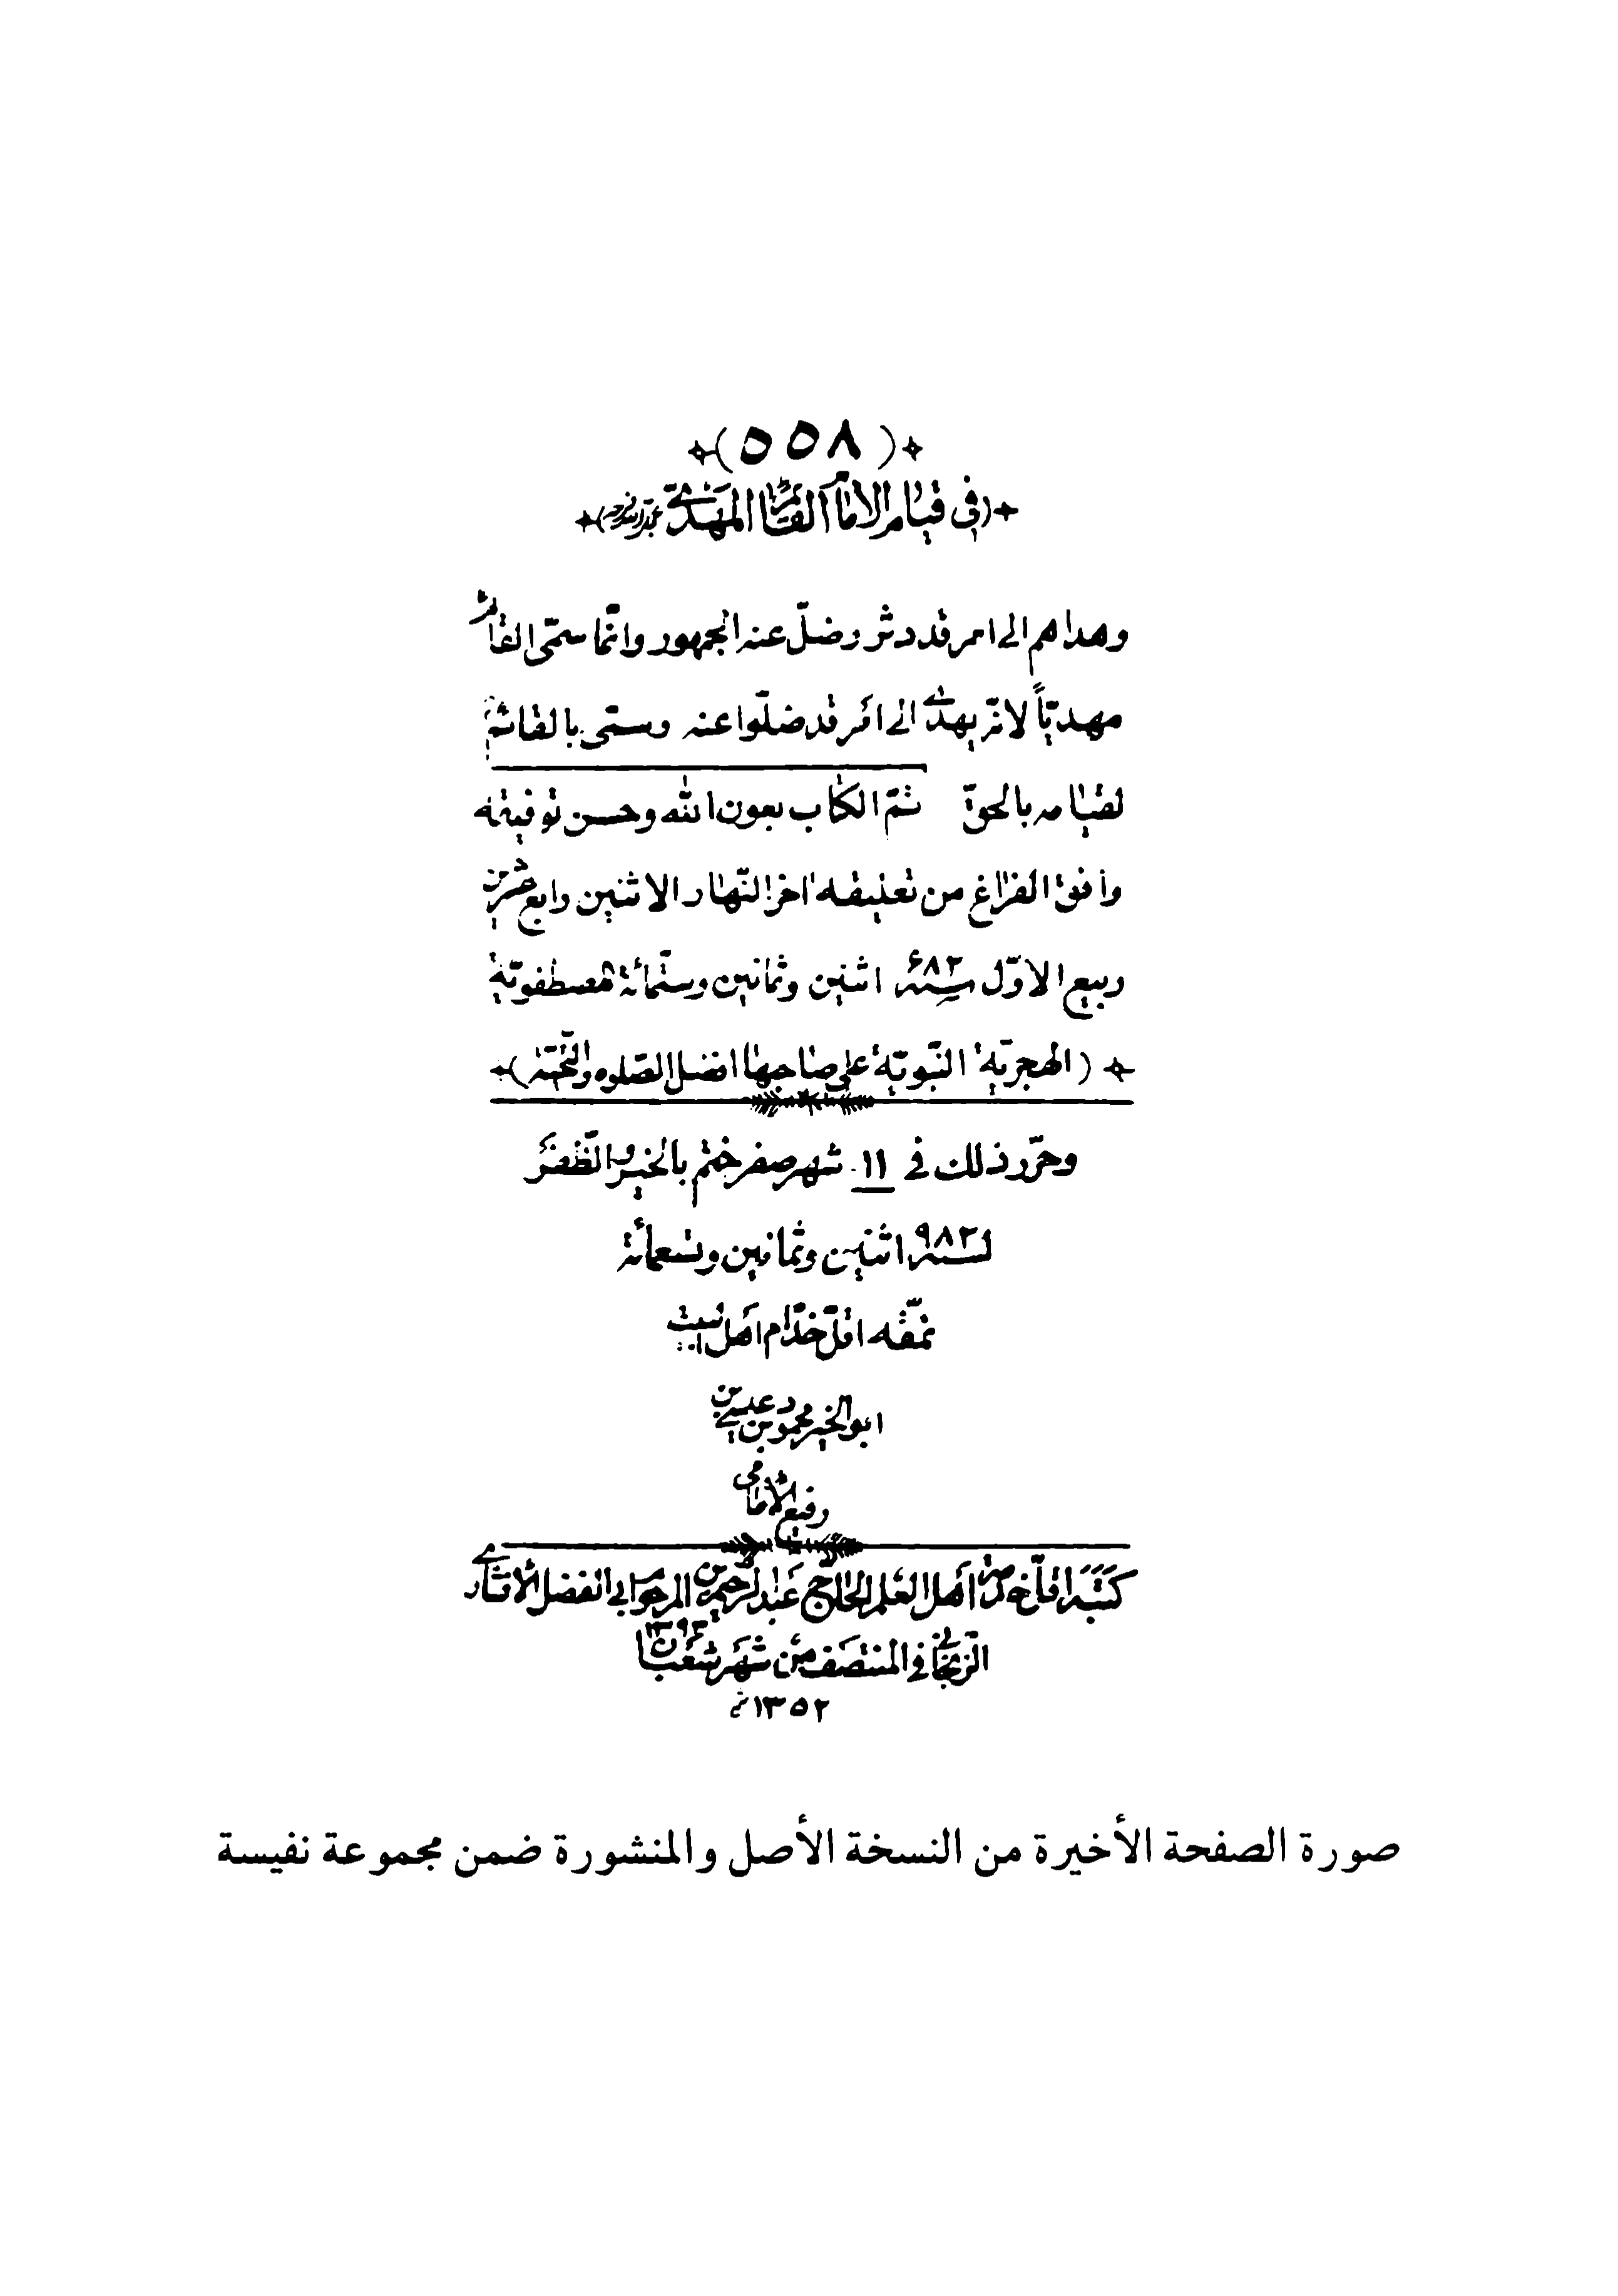 (٥٥٨)
(في قيام الامام القائم المهدي)
وهداهم الى امر قد دثر وضلّ عنه الجمهور وانّما سمّى القائم
مهديّاً لانّه يهدى الى امر قد ضلّوا عنه وسمّى بالقائم
لقيامه بالحقّ تمّ الكتاب بعون الله وحسن توفيقه
وافق الفراغ من تعليقه اخر النّهار الاثنين رابع عشر من
ربيع الاوّل سنه ٦٨٢ اثنين وثمانين وستّمائة مصطفويّة
(الهجريّة النّبويّة على صاحبها افضل الصّلوه والتّحيّة)
وحرّر ذلك في ١١ شهر صفر ختم بالخير والظّفر
لسنه ٩٨٢ اثنين وثمانين وتسعمائة
نمّقه اقلّ خدّام اهل البيت
ابو الخير محمود بن عيسى بن
رفيع الامامى
كتبه اقلّ خدمة اهل العلم الحاج عبد الرحيم بن المرحوم ابى الفضل الافشارى
الزّنجانى في المنتصف من شهر شعبان ١٣٩٣
١٣٥٢ ش
صورة الصفحة الأخيرة من النسخة الأصل والمنشورة ضمن مجموعة نفيسة